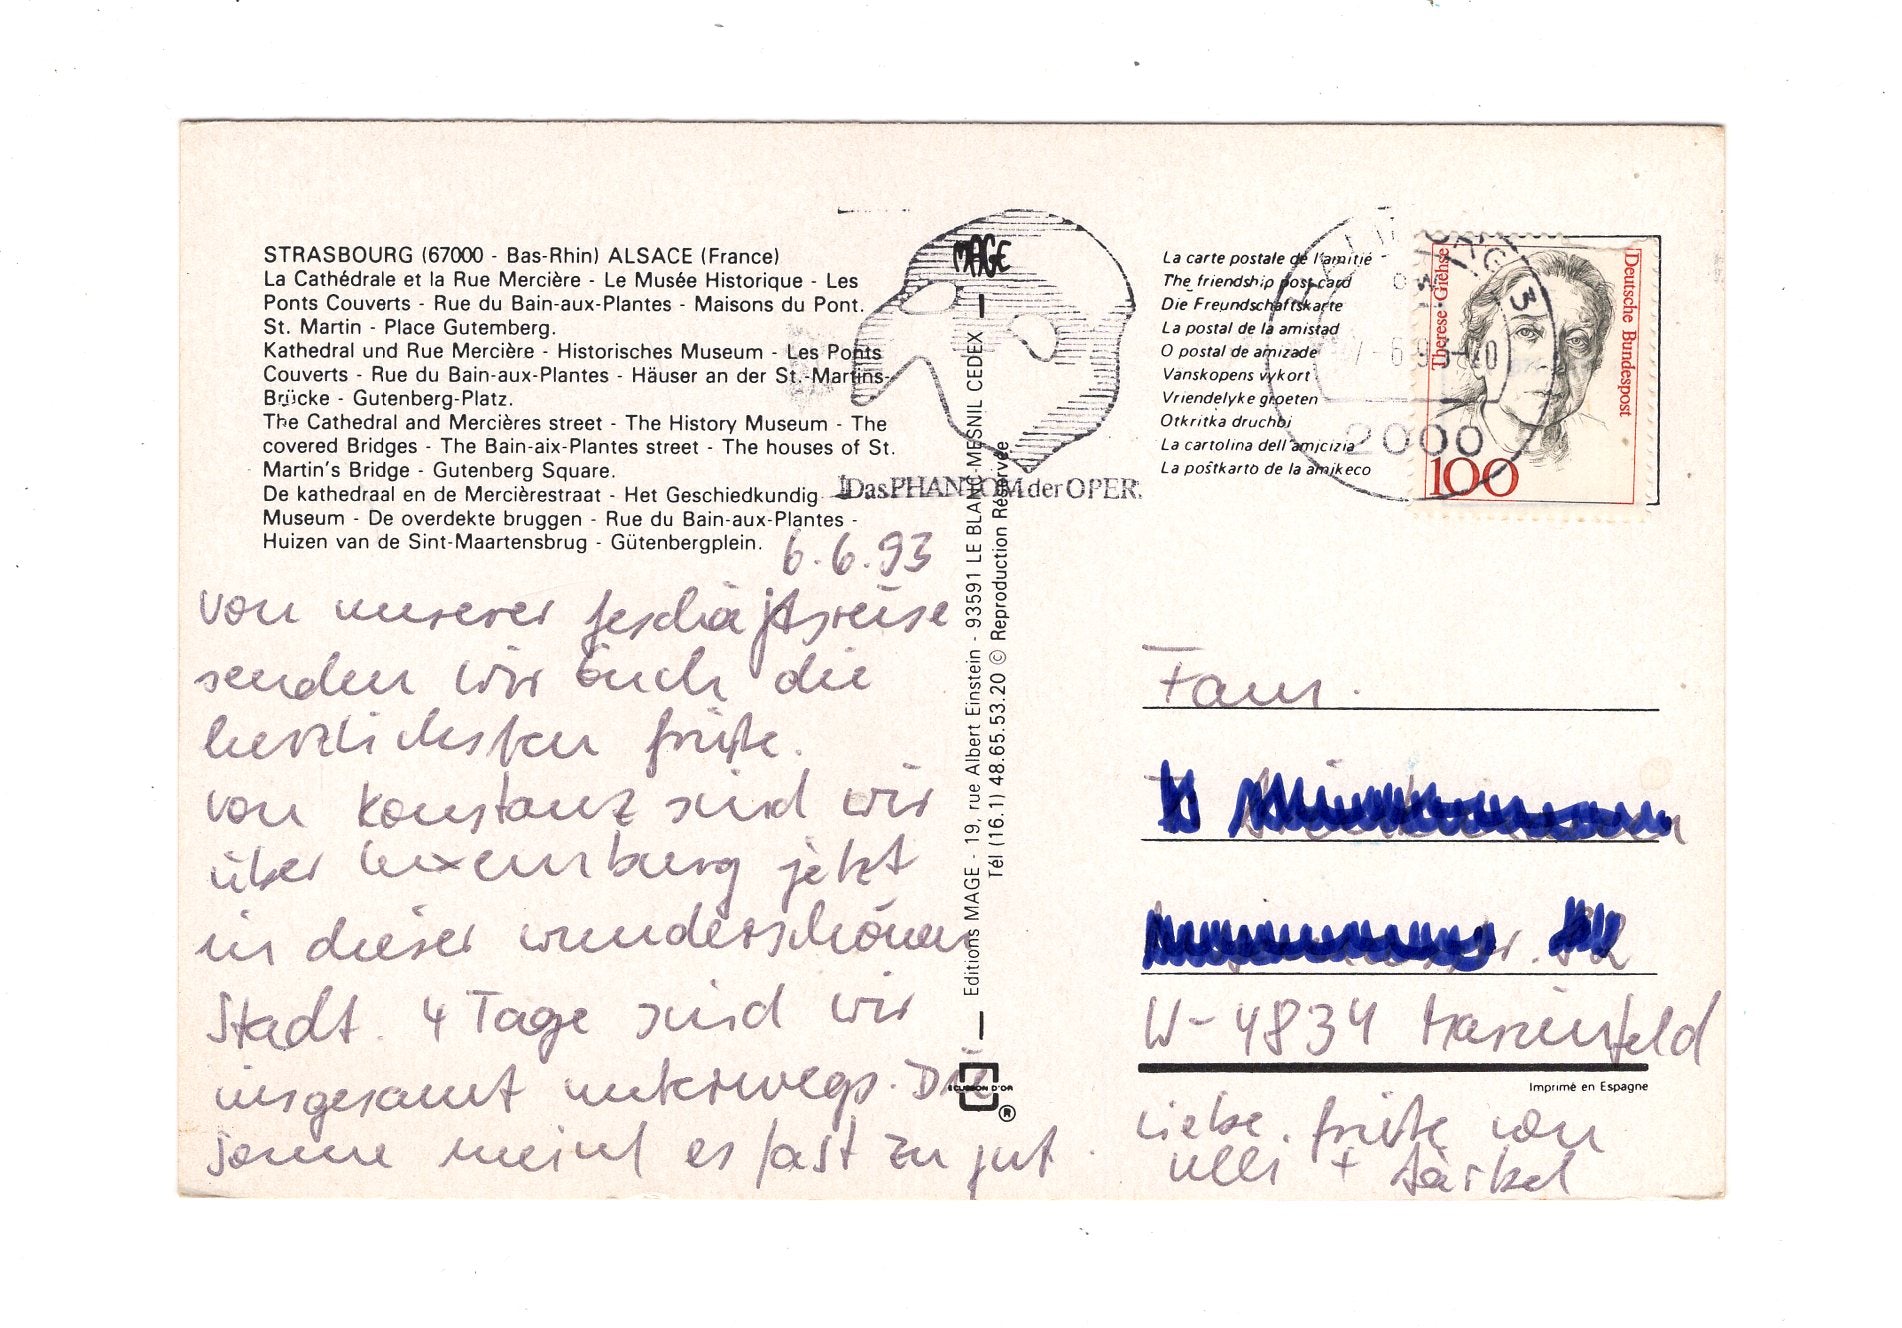 STRASBOURG (67000 - Bas-Rhin) ALSACE (France)
La Cathédrale et la Rue Mercière - Le Musée Historique - Les
Ponts Couverts - Rue du Bain-aux-Plantes - Maisons du Pont.
St. Martin - Place Gutemberg.
Kathedral und Rue Mercière - Historisches Museum - Les Ponts
Couverts - Rue du Bain-aux-Plantes - Häuser an der St.-Martins-
Brücke - Gutenberg-Platz.
The Cathedral and Mercières street - The History Museum - The
covered Bridges - The Bain-aix-Plantes street - The houses of St.
Martin's Bridge - Gutenberg Square.
De kathedraal en de Mercièrestraat - Het Geschiedkundig
Museum - De overdekte bruggen - Rue du Bain-aux-Plantes -
Huizen van de Sint-Maartensbrug - Gütenbergplein.
6.6.93
von unserer Geschäftsreise
senden wir Euch die
herzlichsten Grüße.
von Konstanz sind wir
über Luxemburg jetzt
in dieser wunderschönen
Stadt. 4 Tage sind wir
insgesamt unterwegs. Die
Sonne meint es fast zu gut.
MAGE
Das PHANTOM der OPER.
Editions MAGE - 19, rue Albert Einstein - 93591 LE BLANC-MESNIL CEDEX
Tél (16.1) 48.65.53.20 © Reproduction Réservée
ECUSSON D'OR
®
La carte postale de l'amitié
The friendship post-card
Die Freundschaftskarte
La postal de la amistad
O postal de amizade
Vanskopens vykort
Vriendelyke groeten
Otkritka druchbi
La cartolina dell'amicizia
La postkarto de la amikeco
HAMBURG
2000
Therese Giehse
Deutsche Bundespost
100
Fam.
W-4834 Marienfeld
Imprimé en Espagne
Liebe Grüße von
Ulli +